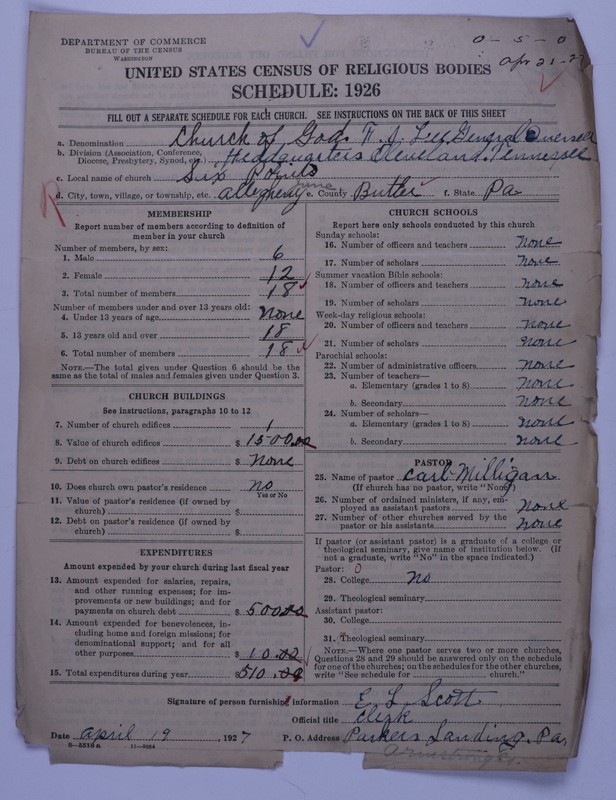 DEPARTMENT OF COMMERCE
BUREAU OF THE CENSUS
WASHINGTON
0 - 5 - 0
Apr 21-27
UNITED STATES CENSUS OF RELIGIOUS BODIES
SCHEDULE: 1926
FILL OUT A SEPARATE SCHEDULE FOR EACH CHURCH. SEE INSTRUCTIONS ON THE BACK OF THIS SHEET
a. Denomination Church of God. F. J. Lee General Overseer
b. Division (Association, Conference, Diocese, Presbytery, Synod, etc.) Headquarters Cleveland. Tennessee
c. Local name of church Six Points
d. City, town, village, or township, etc. Allegheny e. County Butler f. State Pa
R
MEMBERSHIP
Report number of members according to definition of
member in your church
Number of members, by sex:
1. Male 6
2. Female 12
3. Total number of members 18
Number of members under and over 13 years old:
4. Under 13 years of age None
5. 13 years old and over 18
6. Total number of members 18
NOTE.—The total given under Question 6 should be
same as the total of males and females given under Question 3.
CHURCH BUILDINGS
See instructions, paragraphs 10 to 12
7. Number of church edifices 1
8. Value of church edifices $ 1500.00
9. Debt on church edifices $ None
10. Does church own pastor's residence no
Yes or No
11. Value of pastor's residence (if owned by
church) $
12. Debt on pastor's residence (if owned by
church) $
EXPENDITURES
Amount expended by your church during last fiscal year
13. Amount expended for salaries, repairs,
and other running expenses; for im-
provements or new buildings; and for
payments on church debt $ 500.00
14. Amount expended for benevolences, in-
cluding home and foreign missions; for
denominational support; and for all
other purposes $ 10.00
15. Total expenditures during year $ 510.00
CHURCH SCHOOLS
Report here only schools conducted by this church
Sunday schools:
16. Number of officers and teachers none
17. Number of scholars none
Summer vacation Bible schools:
18. Number of officers and teachers none
19. Number of scholars none
Week-day religious schools:
20. Number of officers and teachers none
21. Number of scholars none
Parochial schools:
22. Number of administrative officers none
23. Number of teachers—
a. Elementary (grades 1 to 8) none
b. Secondary none
24. Number of scholars—
a. Elementary (grades 1 to 8) none
b. Secondary none
PASTOR
25. Name of pastor Carl Milligan
(If church has no pastor, write "None")
26. Number of ordained ministers, if any, em-
ployed as assistant pastors None
27. Number of other churches served by the
pastor or his assistants none
If pastor (or assistant pastor) is a graduate of a college or
theological seminary, give name of institution below. (If
not a graduate, write "No" in the space indicated.)
Pastor: 0
28. College no
29. Theological seminary
Assistant pastor:
30. College
31. Theological seminary
NOTE.—Where one pastor serves two or more churches,
Questions 28 and 29 should be answered only on the schedule
for one of the churches; on the schedules for the other churches,
write "See schedule for church."
Signature of person furnishing information E L Scott
Official title Clerk
Date April 19, 1927 P. O. Address Parkers Landing. Pa.
8-5519a 11-9864
Armstrong Co.